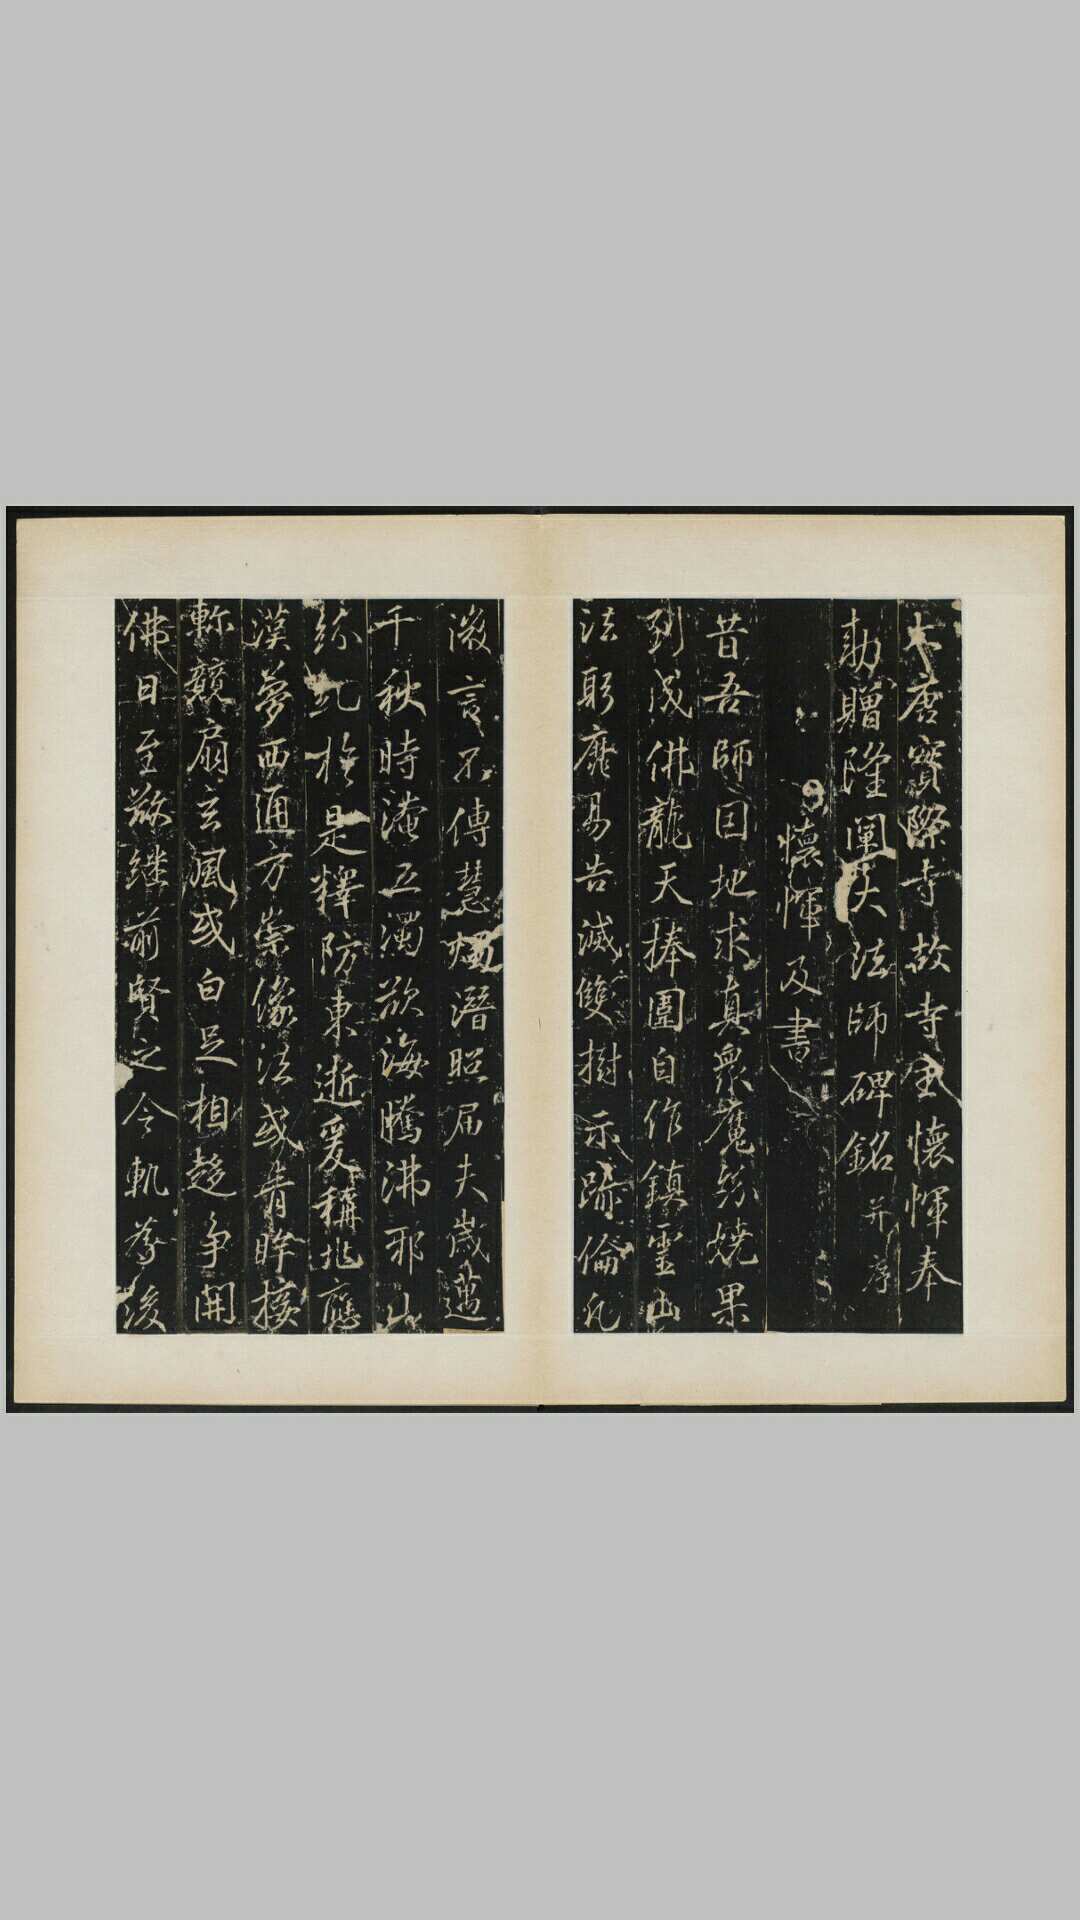 大唐實際寺故寺主懷惲奉
勅贈隆闡大法師碑銘并序
懷惲及書
昔吾師因地求真眾魔紛嬈果
到成佛龍天捧圍自作鎮靈山
法躬常易告滅雙樹示跡淪凡
微言不傳慧炬潛照屆夫歲邁
千秋時淹五濁欲海騰沸邪山
紛糺於是釋防東逝爰稱北應
漢夢西通方崇像法或青眸接
軫競扇玄風或白足相趍爭開
佛日至茲繼前賢之令軌為後